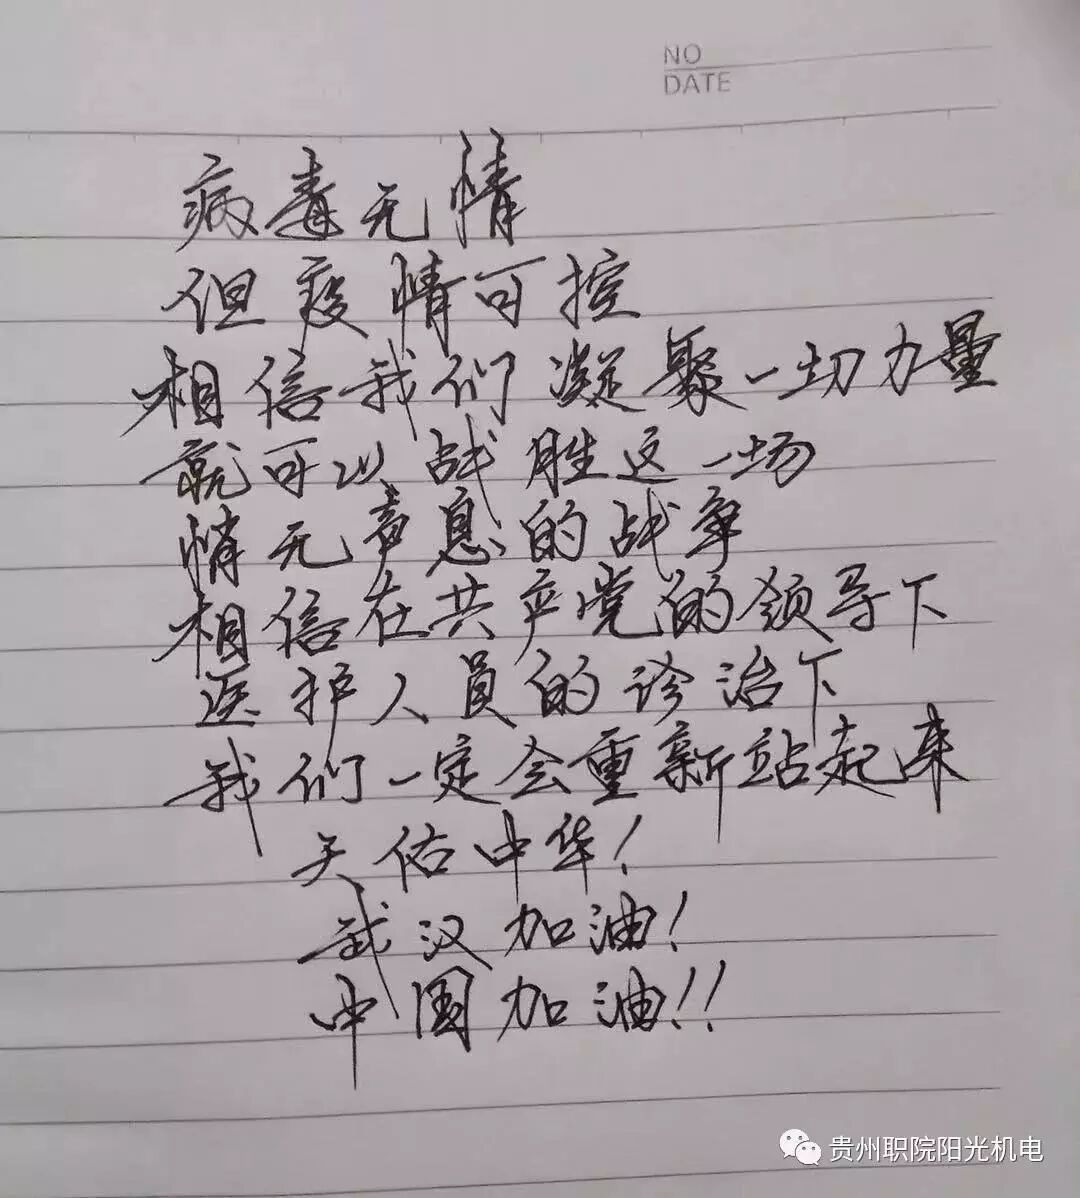 NO
DATE
病毒无情
但疫情可控
相信我们凝聚一切力量
就可以战胜这一场
悄无声息的战争
相信在共产党的领导下
医护人员的诊治下
我们一定会重新站起来
天佑中华!
武汉加油!
中国加油!!
贵州职院阳光机电